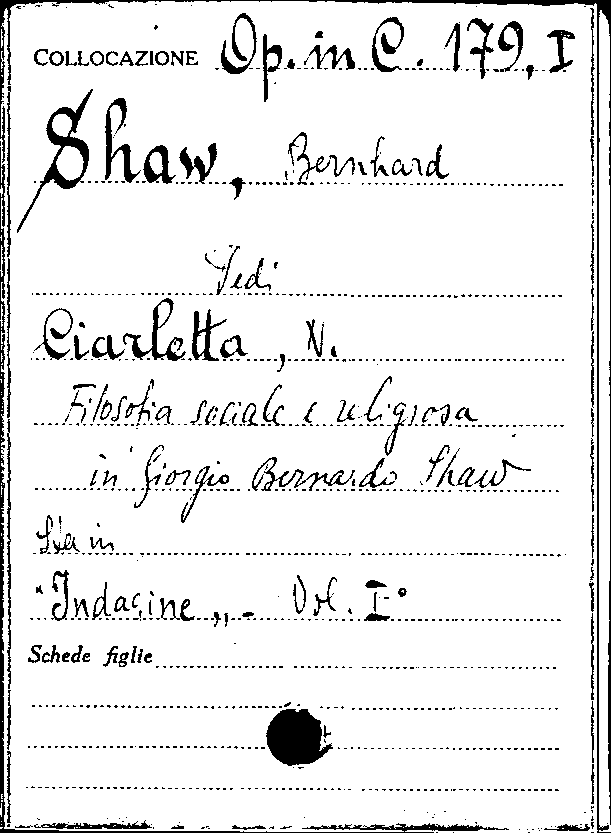 COLLOCAZIONE Op. in C. 179, I
Shaw, Bernhard
Vedi
Ciarletta, N.
Filosofia sociale e religiosa
in Giorgio Bernardo Shaw
Sta in
"Indagine„ - Vol. I°
Schede figlie